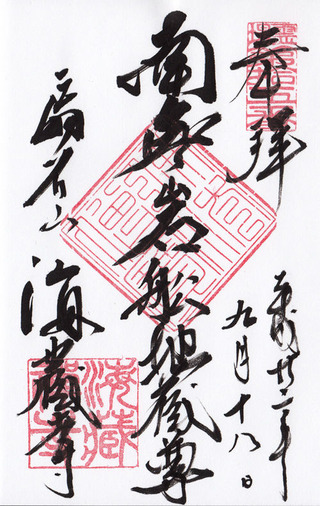 奉拝
平成廿二年
九月十八日
南無岩船地蔵尊
扇谷山
海蔵寺
海藏